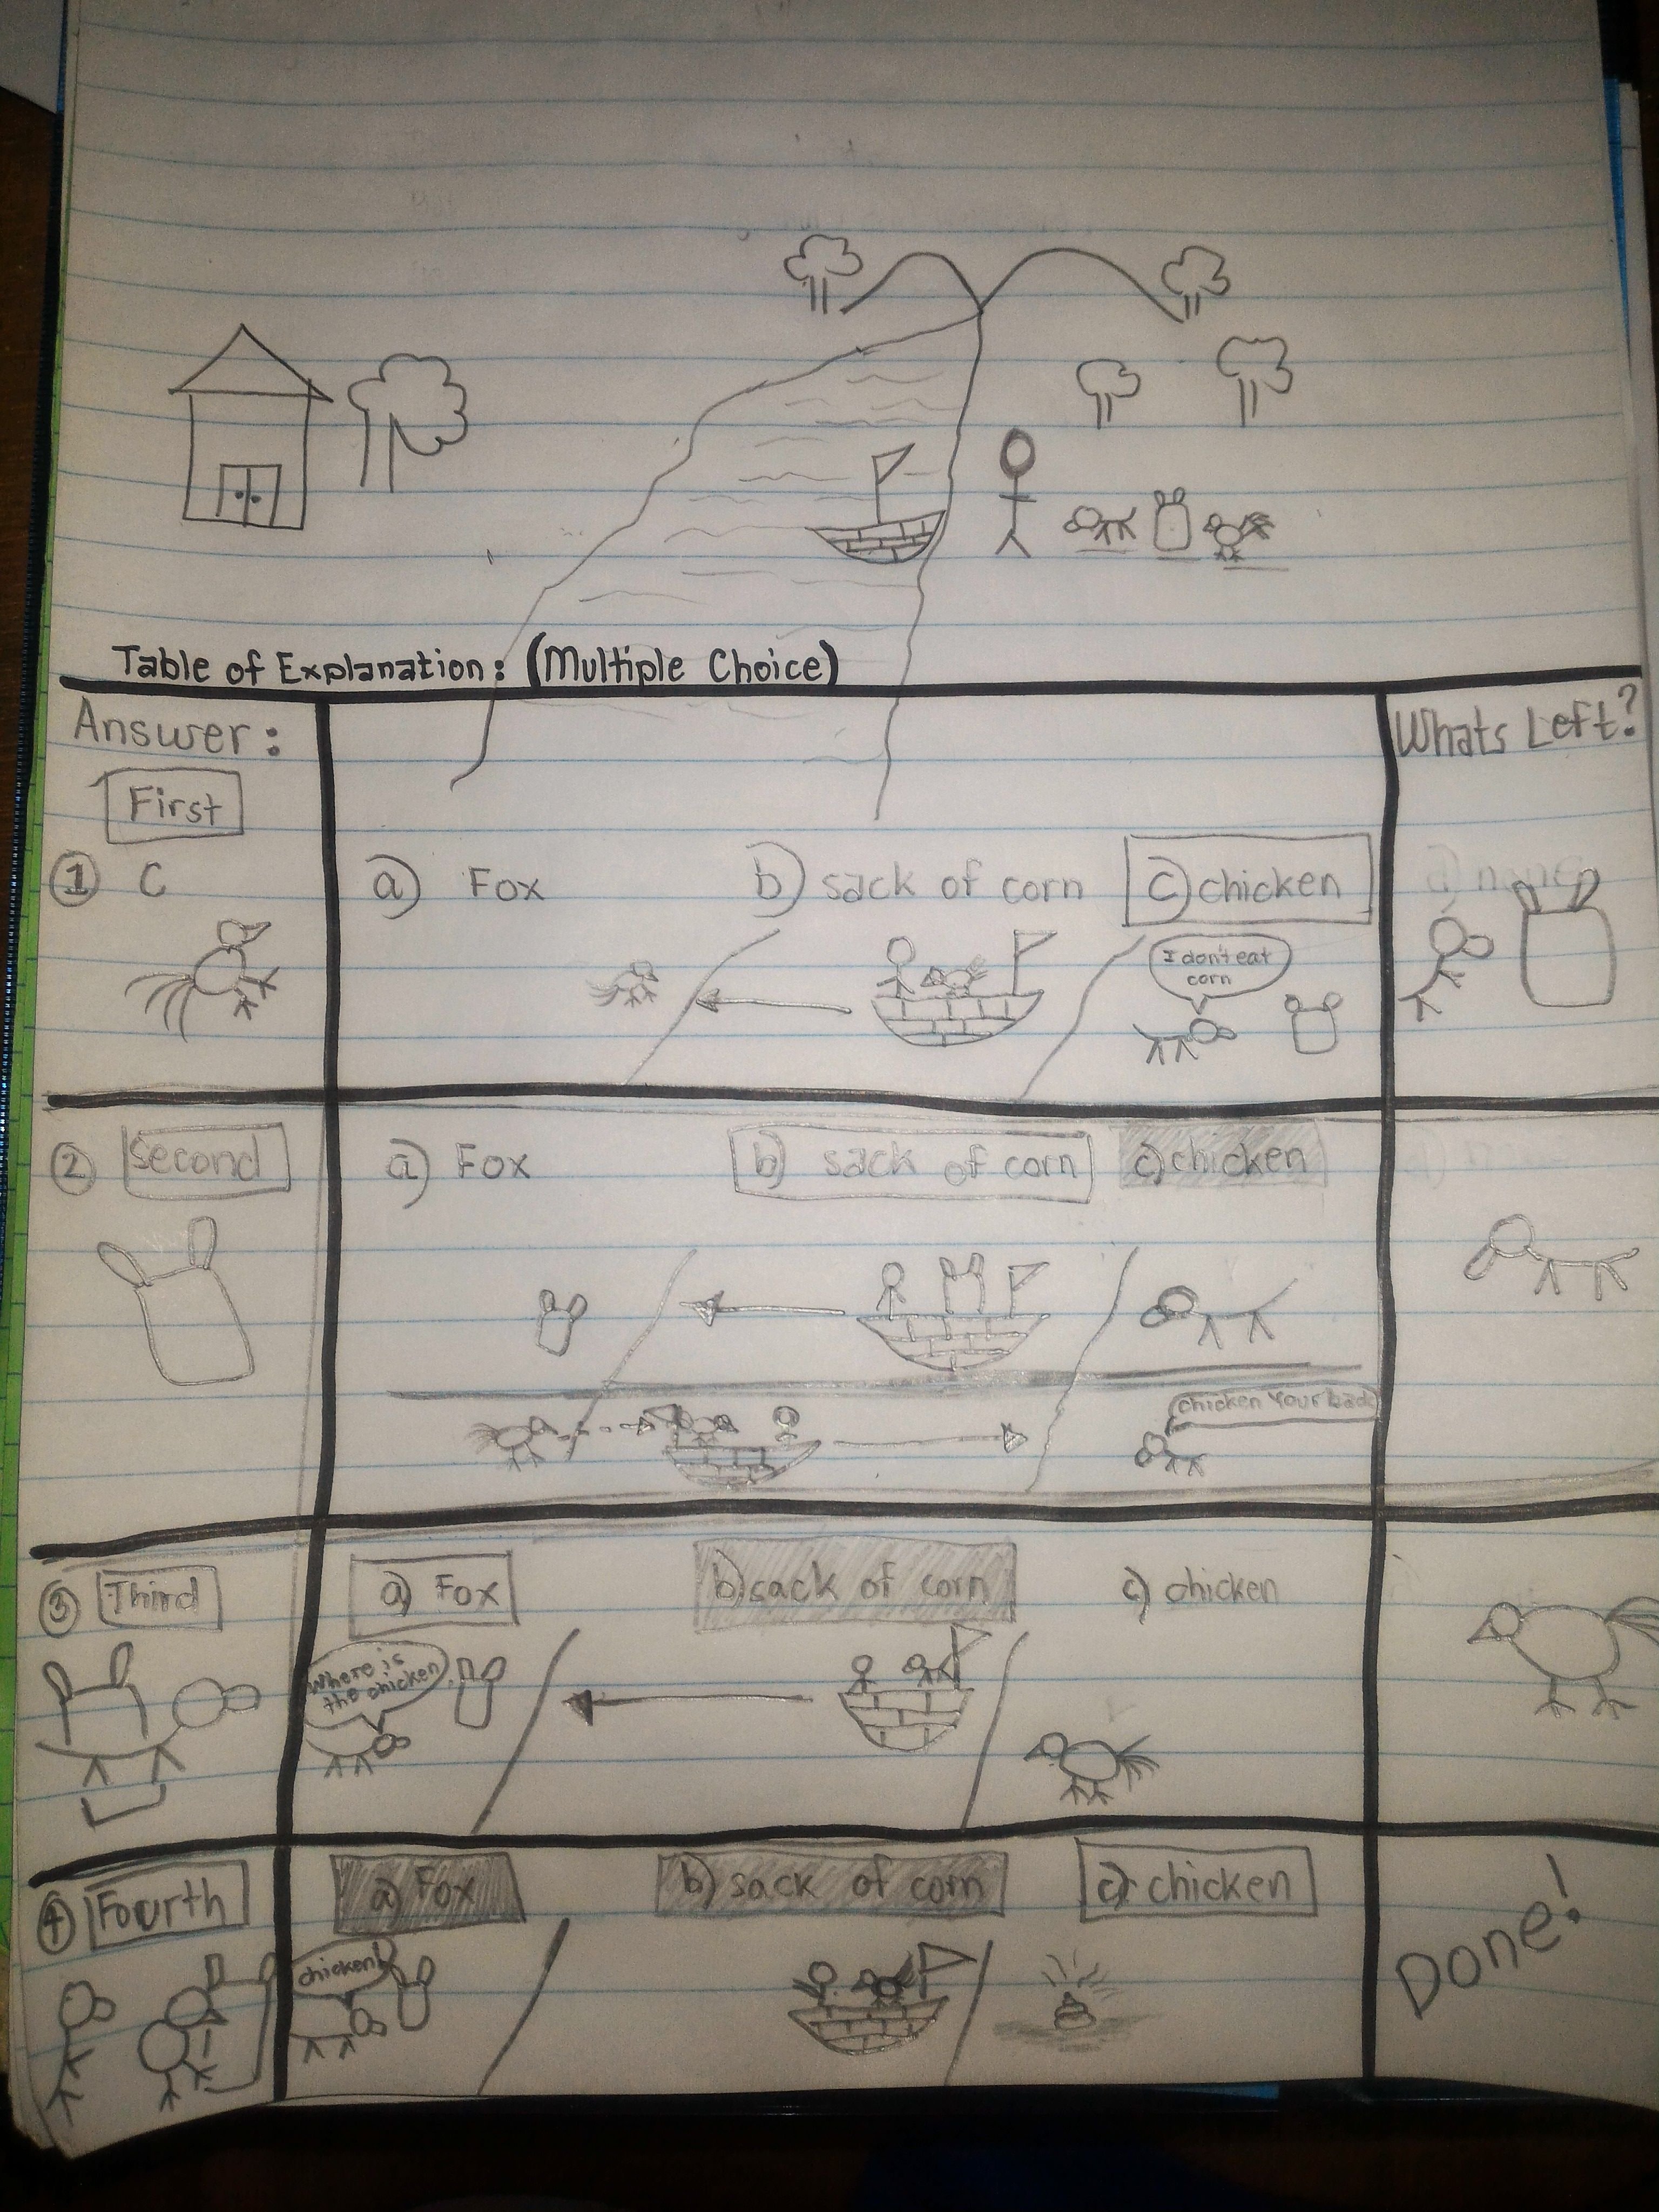 Table of Explanation: (Multiple Choice)
Answer:
Whats Left?
First
1 C
a) Fox
b) sack of corn
c) chicken
d) none
I don't eat
corn
2 Second
a) Fox
b) sack of corn
c) chicken
chicken Your back
3 Third
a) Fox
b) sack of corn
c) chicken
Where is
the chicken
4 Fourth
a) Fox
b) sack of corn
c) chicken
chicken!
Done!